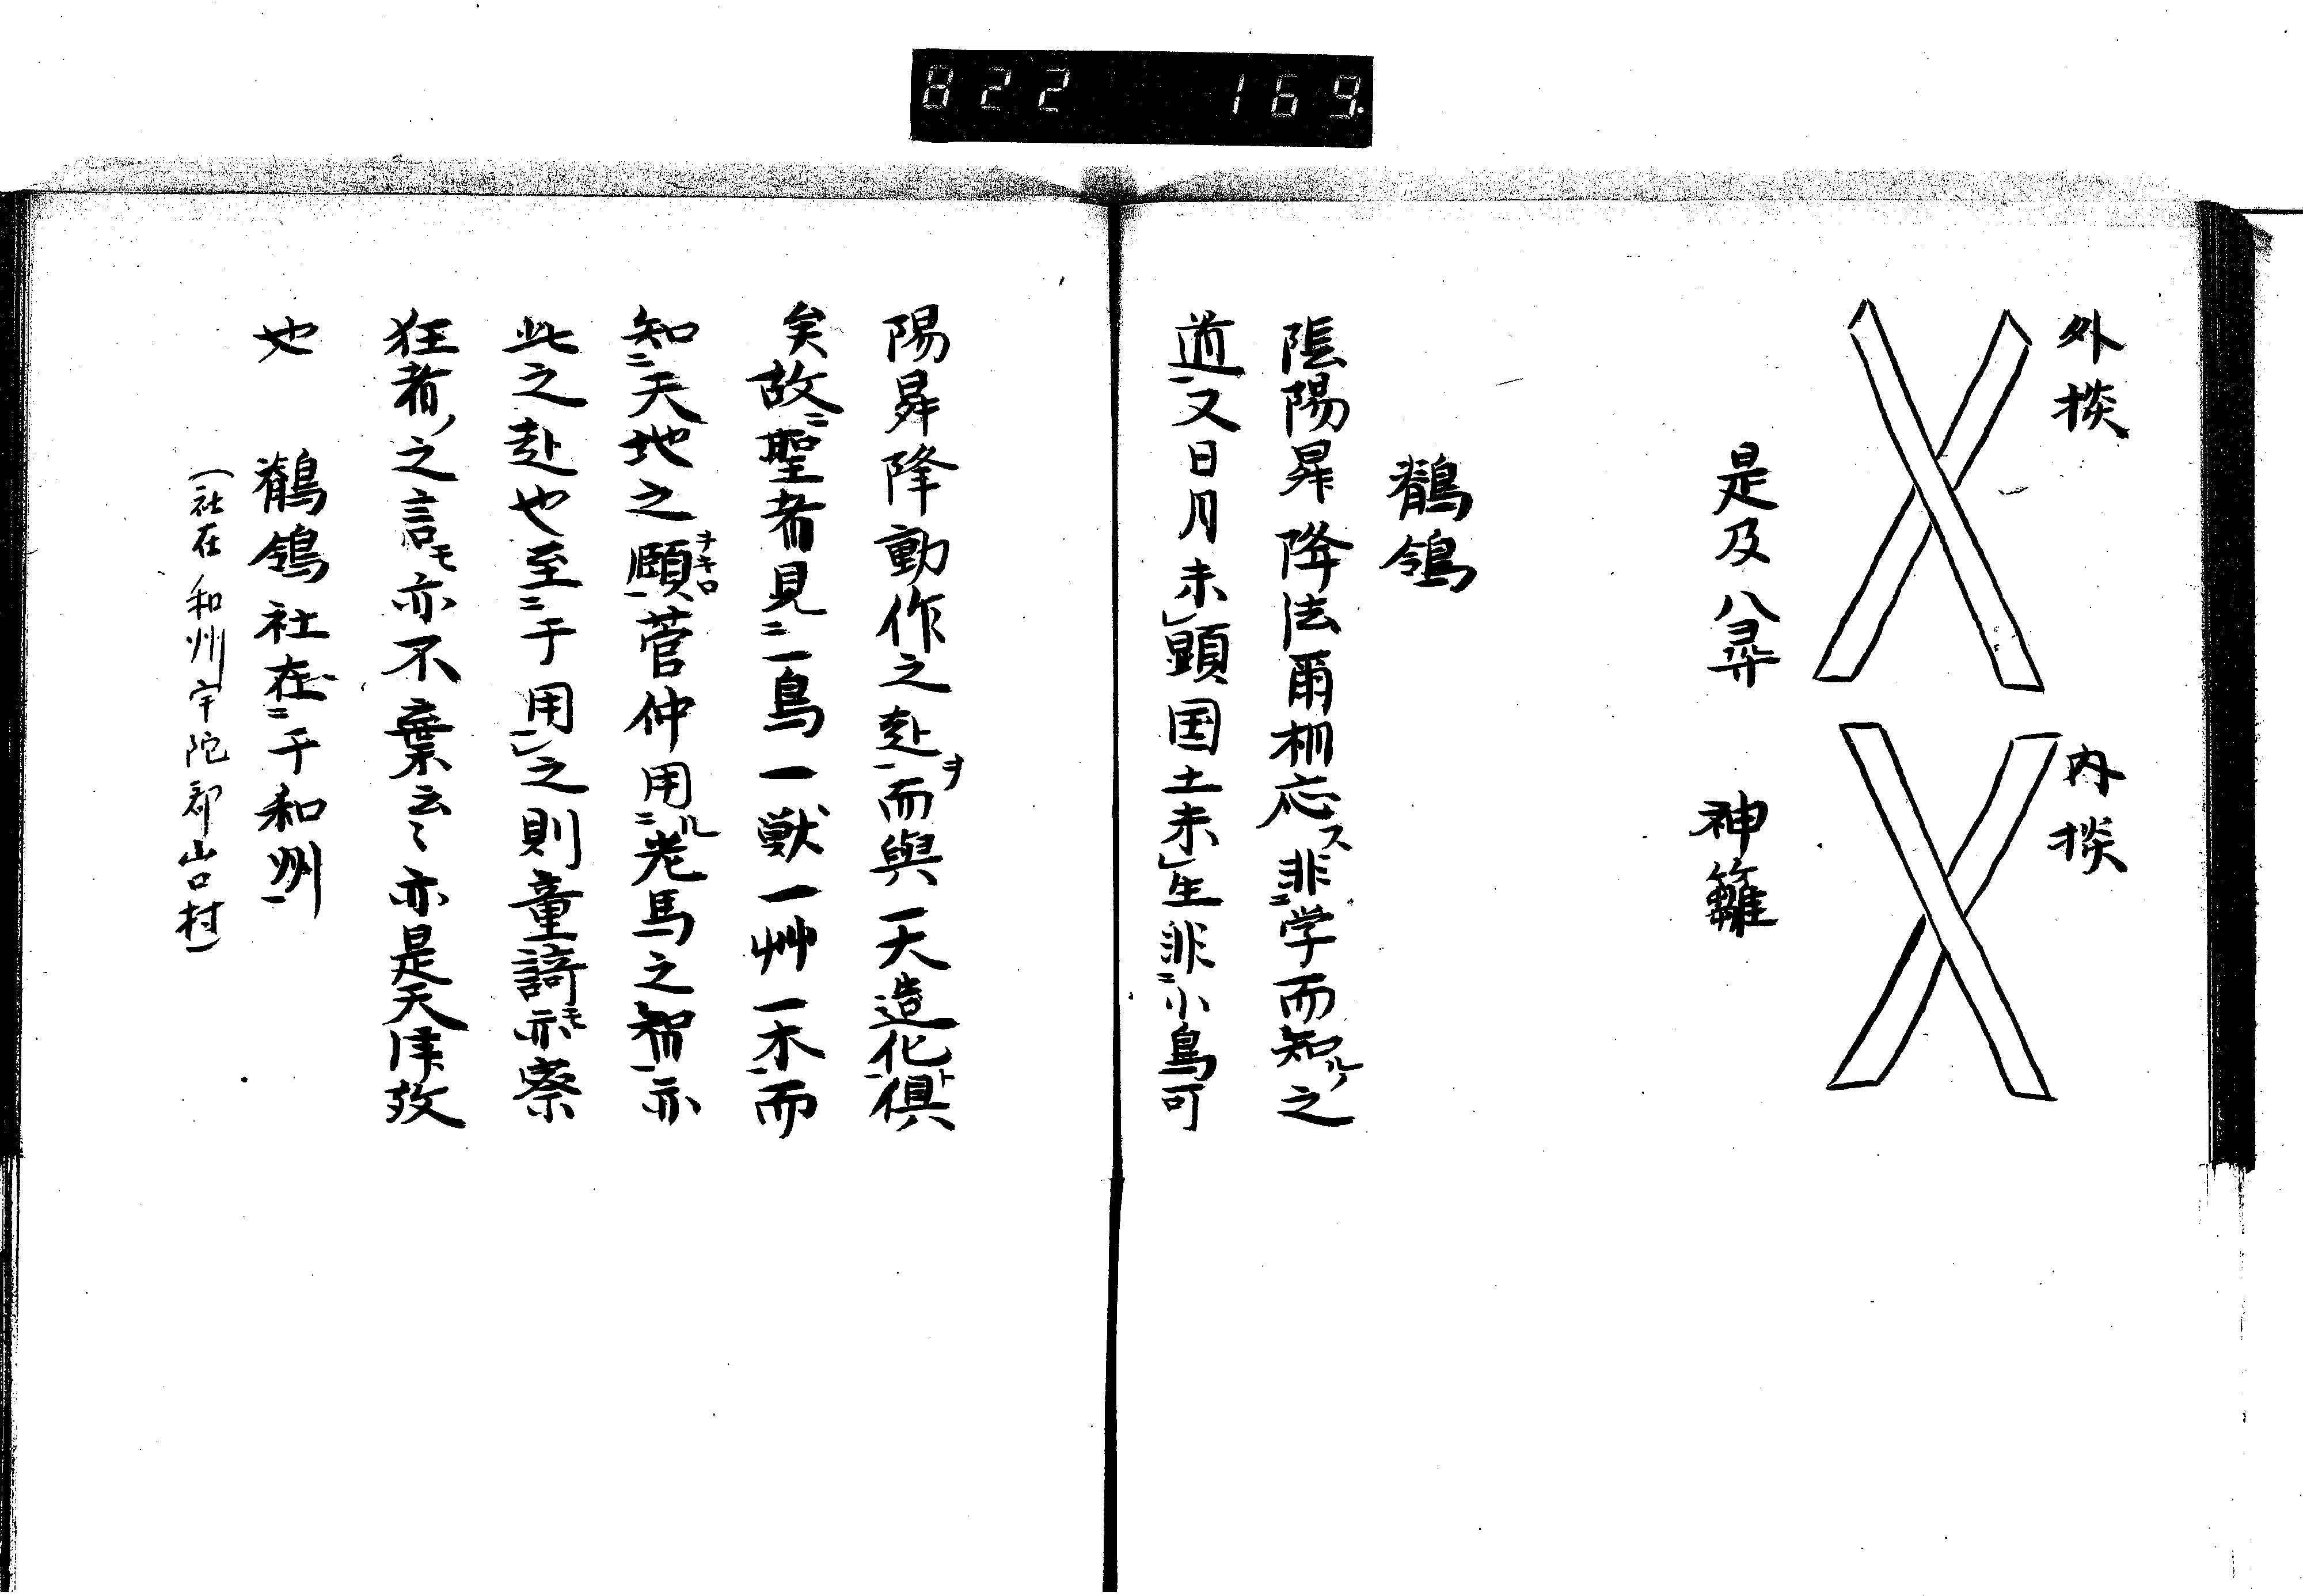 822 169
外掞
内掞
是及八尋 神籬
鶺鴒
陰陽昇降法爾相応ス非ニ学而知ルノ之
道一又日月未レ顕国土未レ生非ニ小鳥可
陽昇降動作之赴一ヲ而與一天造化一ト俱
矣故ニ聖者見ニ一鳥一獣一艸一木一而
知ニ天地之頤一ヲキロ菅仲用ニル老馬之智一亦
此之赴也至ニ于用レ之則童謌モ亦察
狂者ノ之言モ亦不棄云々亦是天津教
也 鶺鴒社在ニ于和州一
(社在和州宇陀郡山口村)